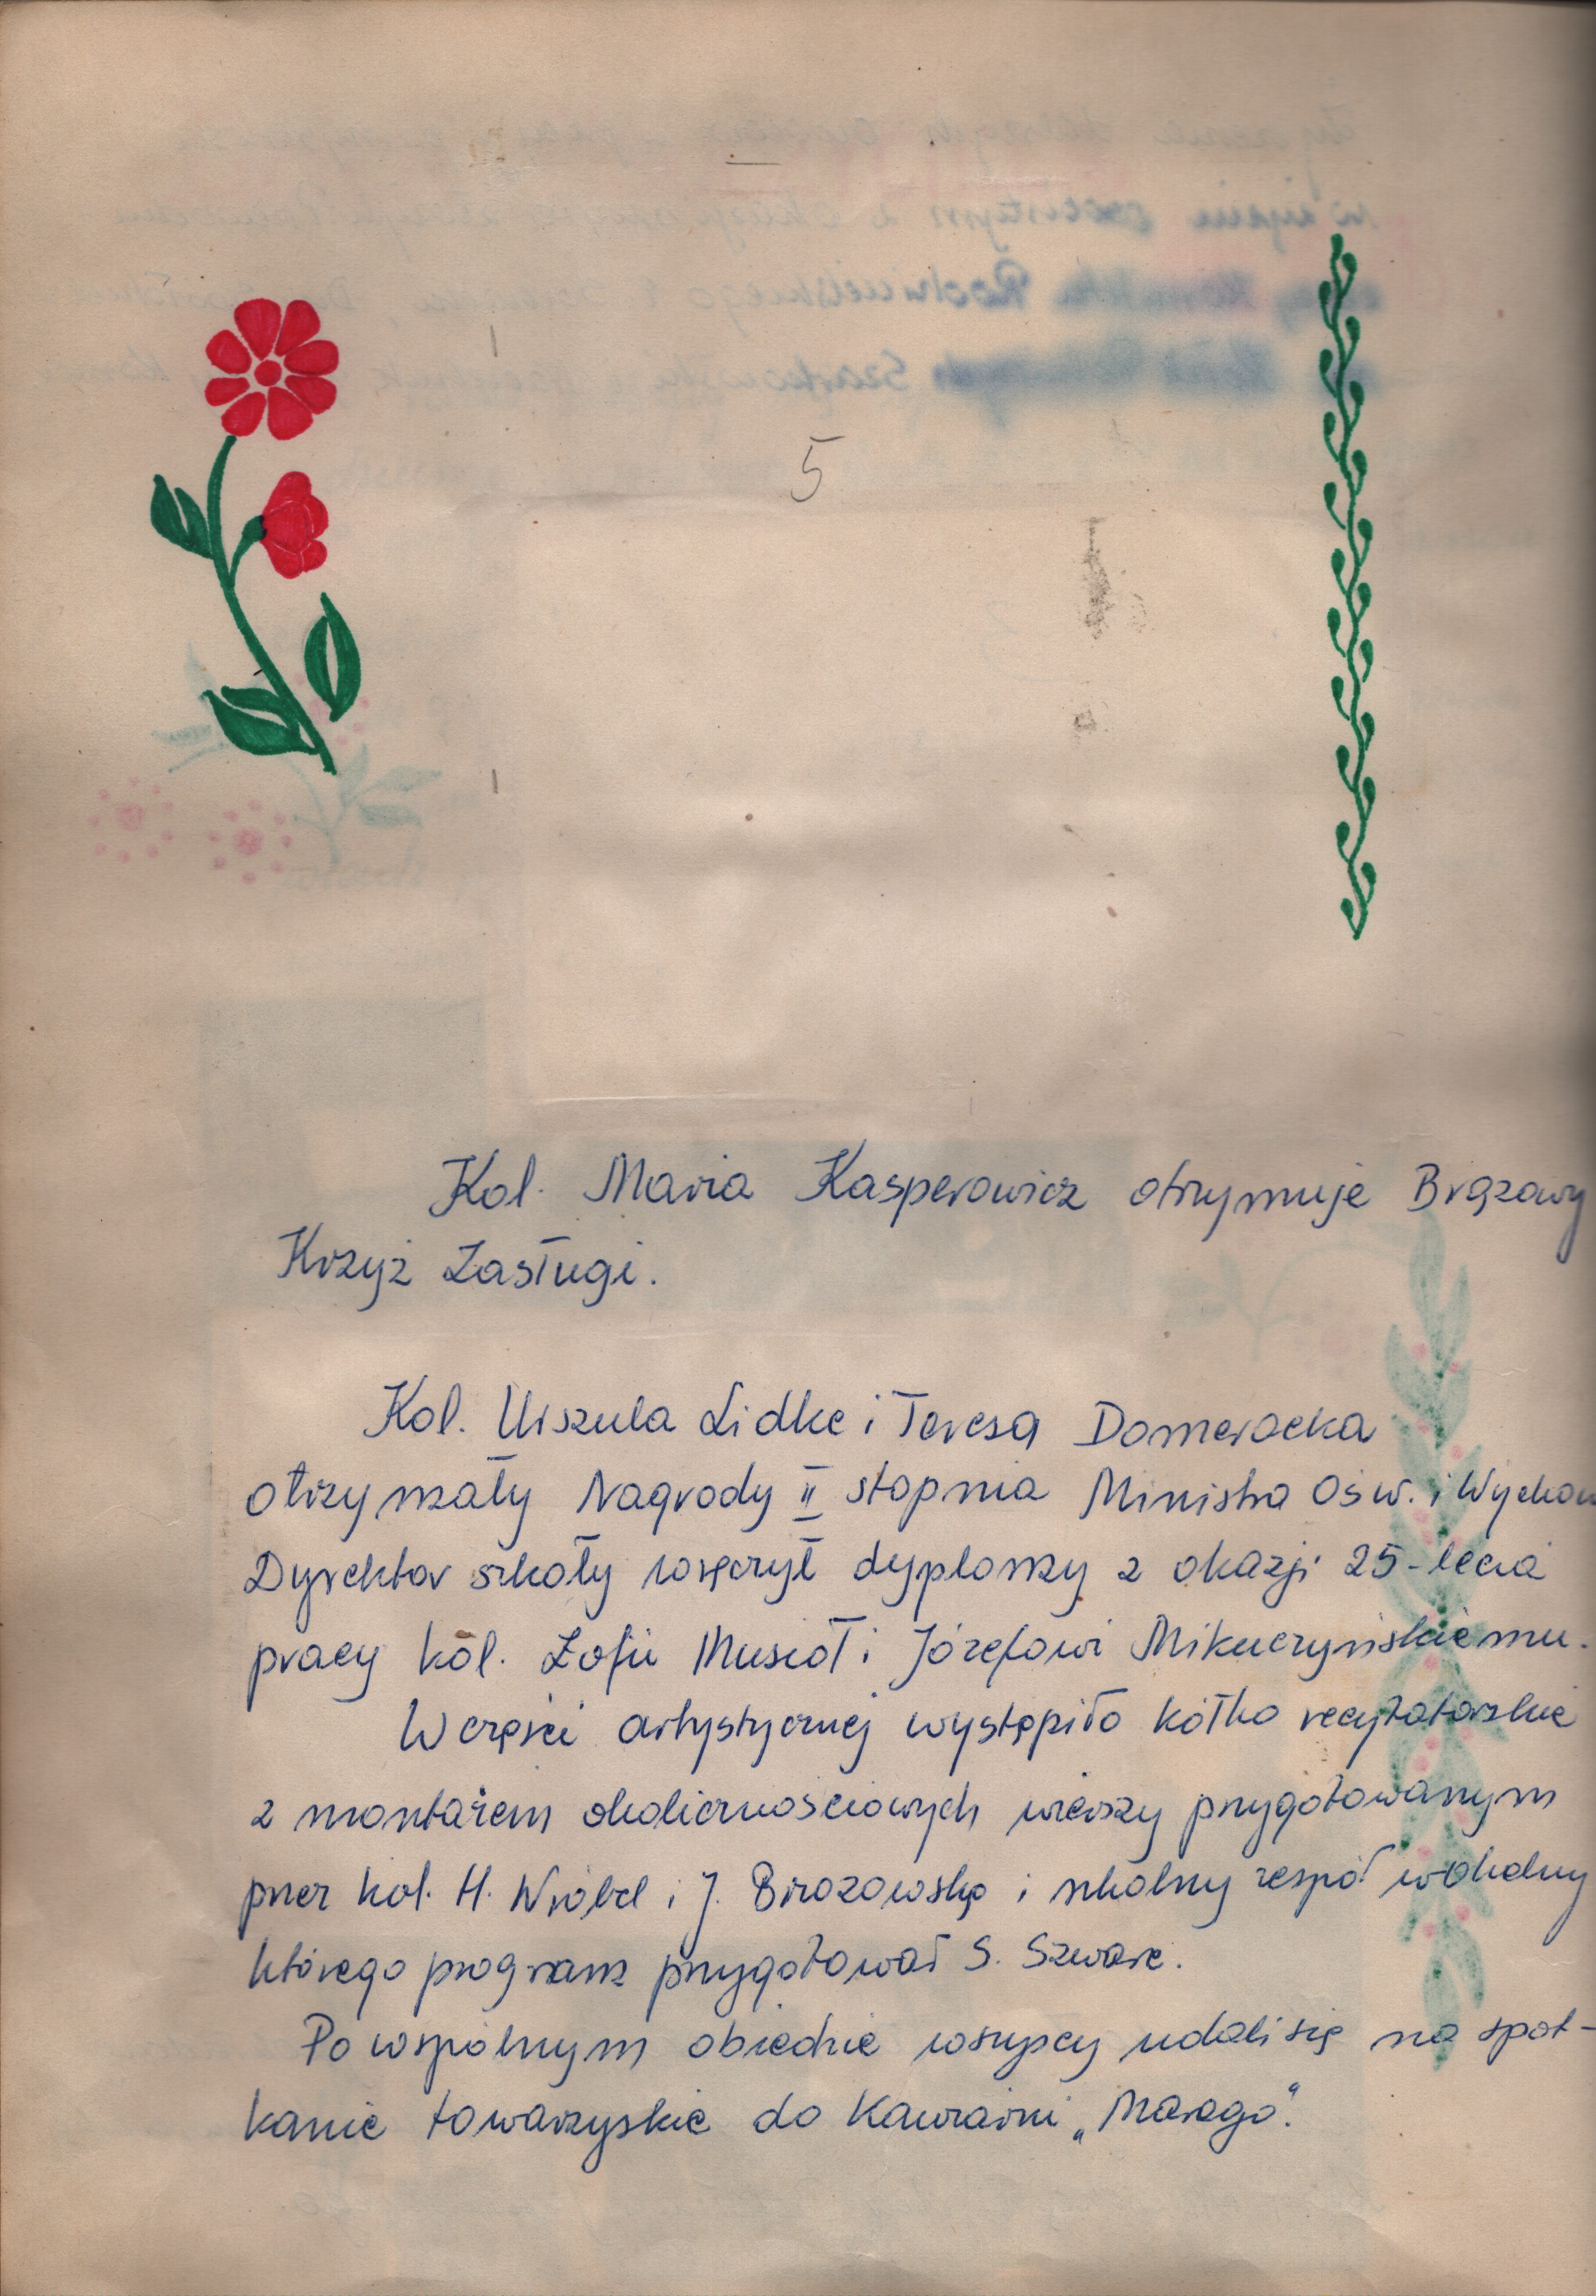 5
Kol. Maria Kasperowicz otrzymuje Brązowy
Krzyż Zasługi.
Kol. Urszula Lidke i Teresa Domeracka
otrzymały Nagrody II stopnia Ministra Ośw. i Wychow
Dyrektor szkoły wręczył dyplomy z okazji 25-lecia
pracy kol. Zofii Musioł i Józefowi Mikuczyńskiemu.
W części artystycznej wystąpiło kółko recytatorskie
z montażem okolicznościowych wierszy przygotowanym
przez kol. H. Wróbel i J. Brozowską i szkolny zespół wokalny
którego program przygotował S. Szwarc.
Po wspólnym obiedzie wszyscy udali się na spot-
kanie towarzyskie do Kawiarni „Marago".